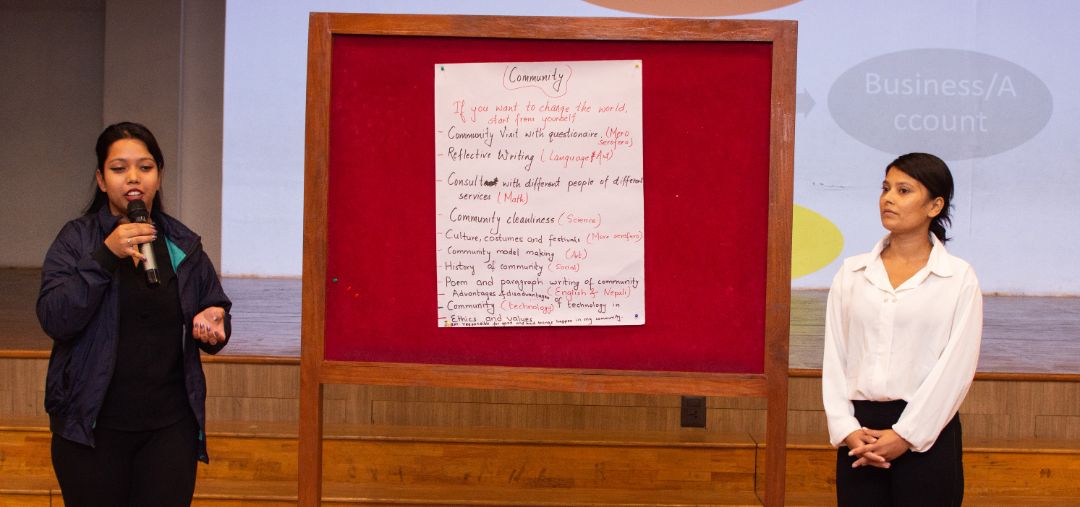 Community
If you want to change the world,
start from yourself
- Community Visit with questionaire. (Mero
serofero)
- Reflective Writing (Language & Art)
- Consult with different people of different
services (Math)
- Community cleanliness (Science)
- Culture, costumes and festivals (Mero serofero)
- Community model making (Art)
- History of community (Social)
- Poem and paragraph writing of community
(English & Nepali)
- Advantages & disadvantages of technology in
- Community (technology)
- Ethics and values
I am responsible for good and bad things happen in my community.
Business/A
ccount